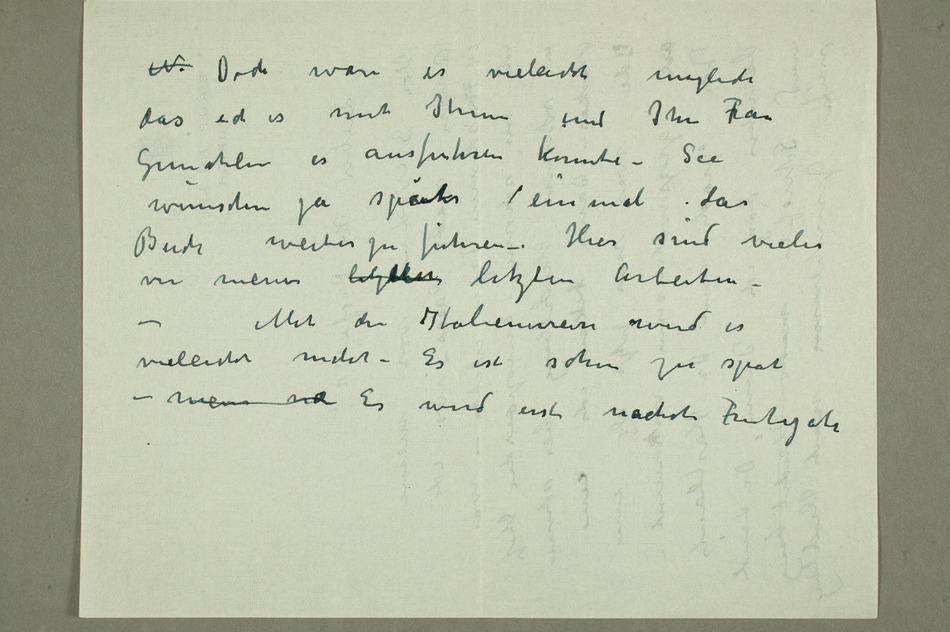 Doch wäre es vieleicht möglich
das ich es mit Ihnen und Ihr Frau
Gemahlin es ausfuhren konnte – See
wünschen ja später einmal das
Buch weiter zu fuhren –. Hier sind vieles
von meiner letzten Arbeiten –
– Mit der Italienreise wird es
vieleicht nicht – Es ist schon zu spat
– Es wird erst nachste Fruhjahr